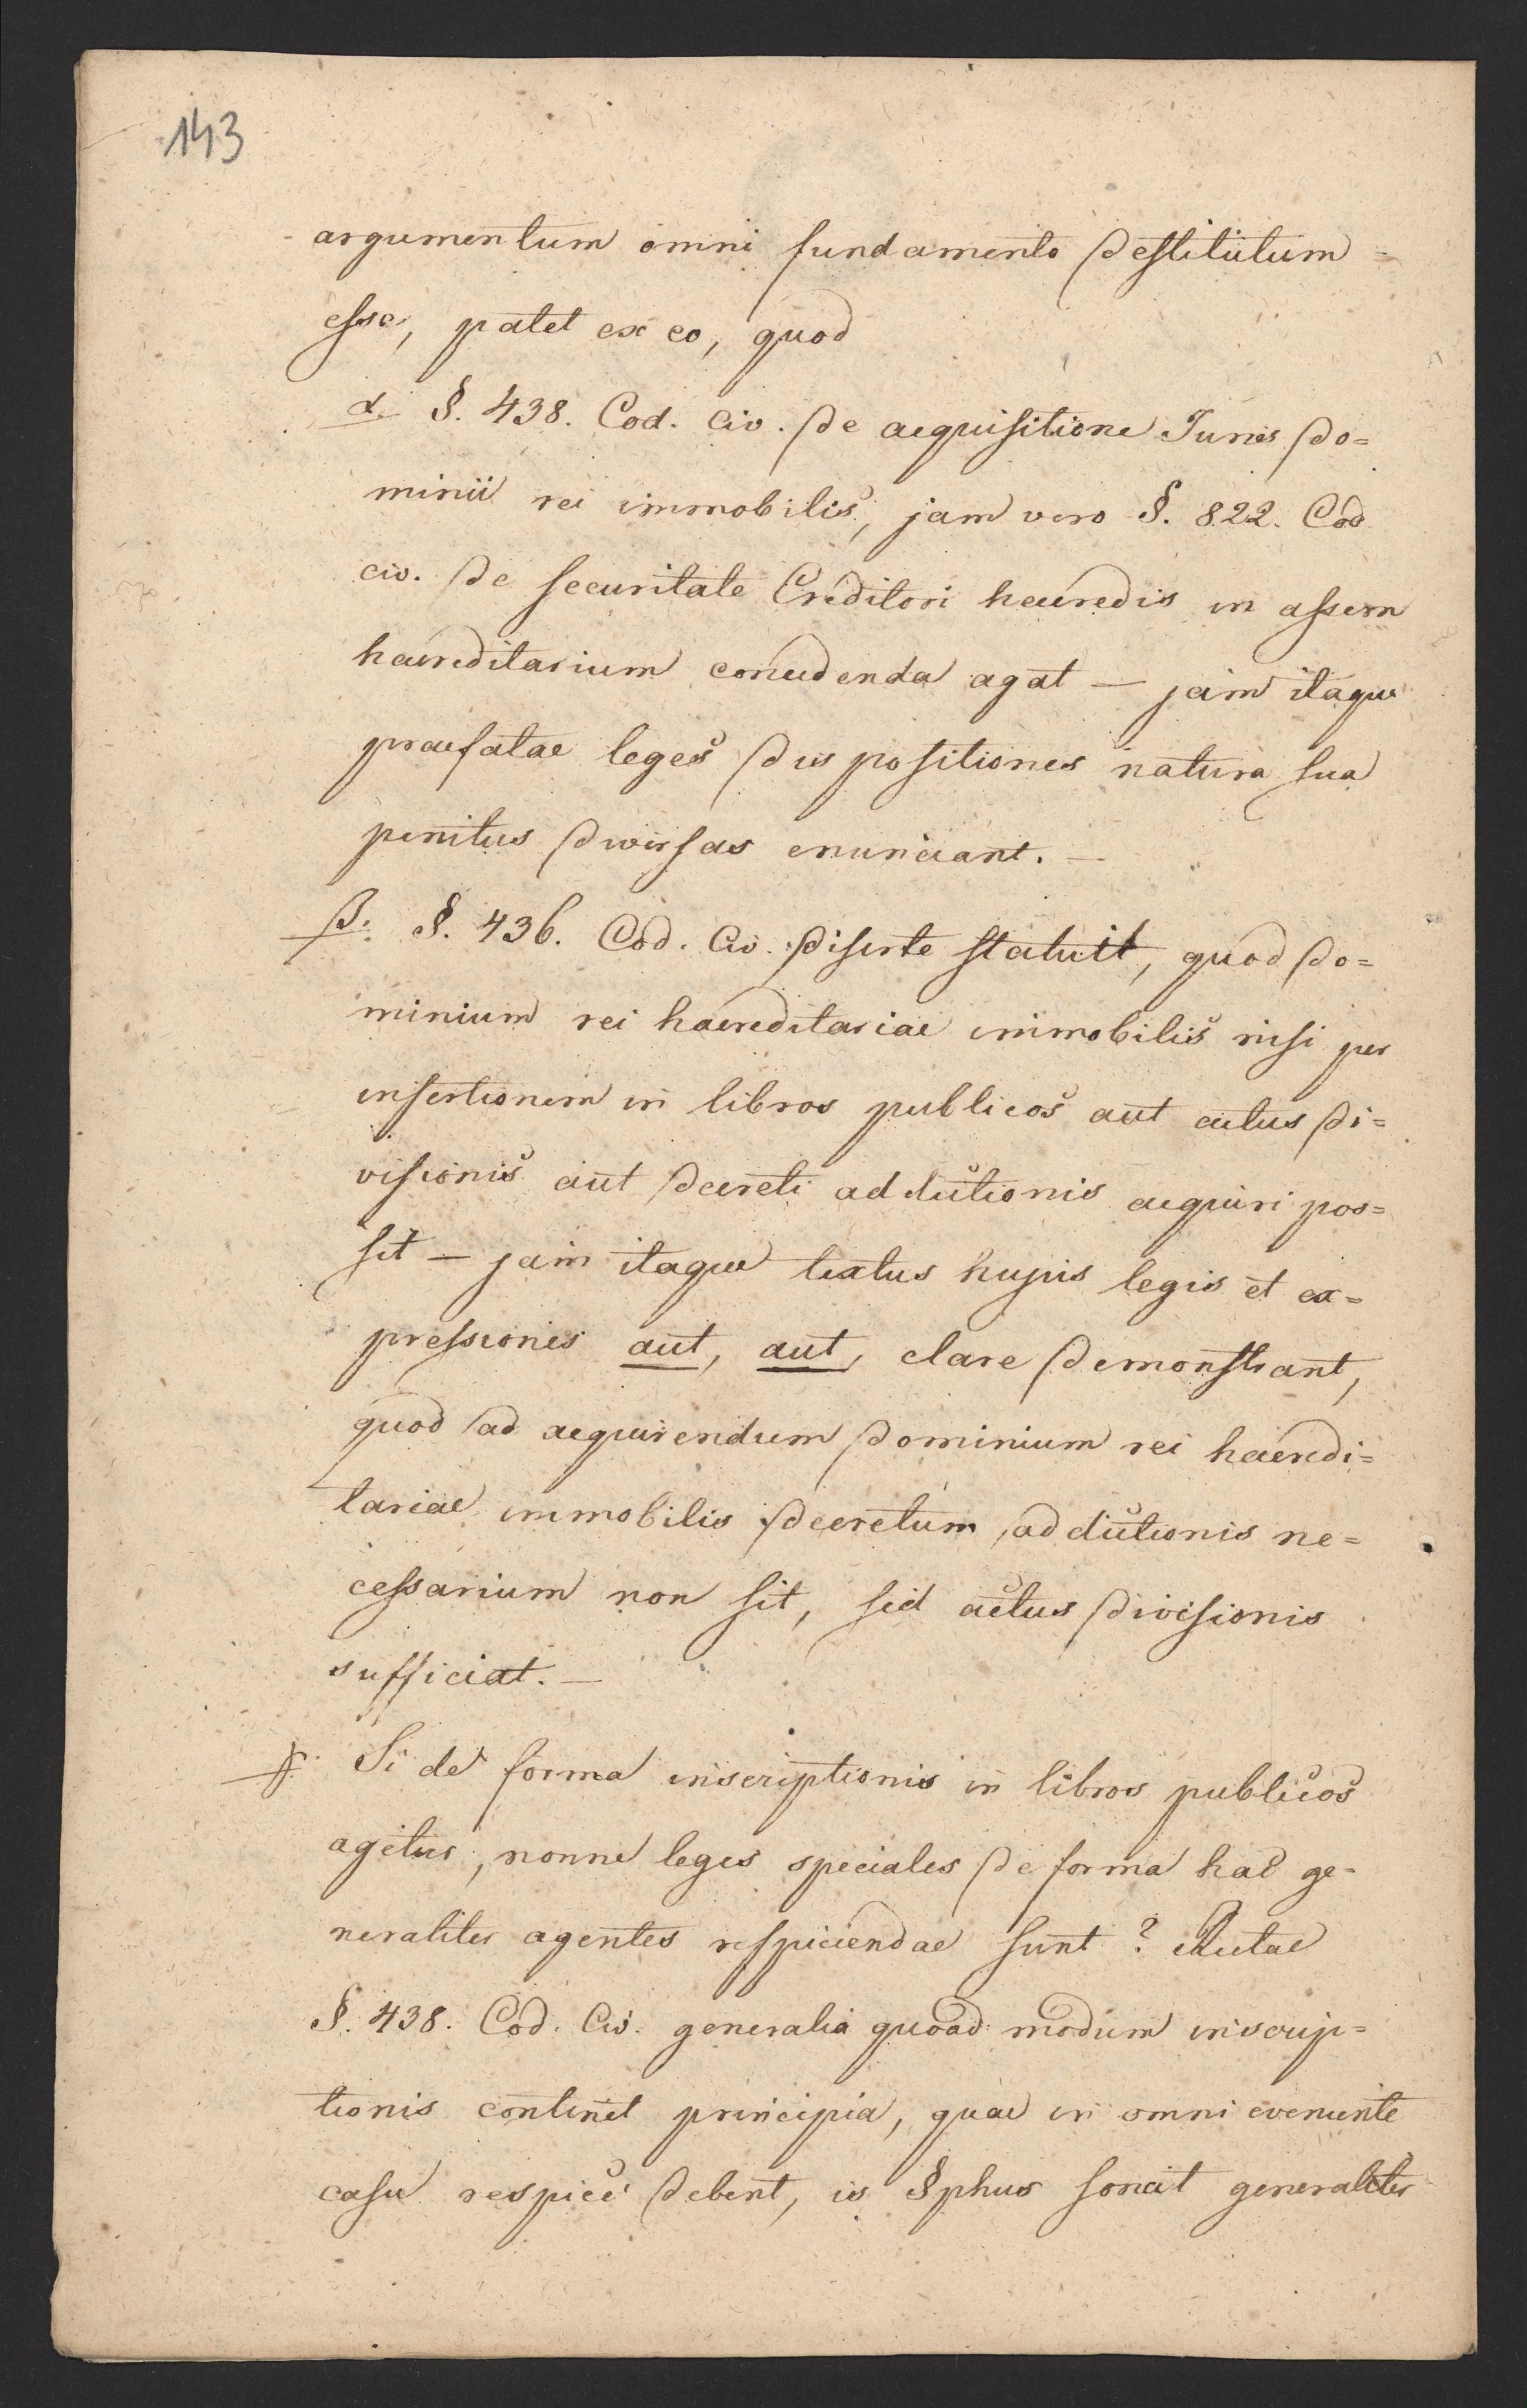 143
argumentum omni fundamento destitutum
esse, patet ex eo, quod
α. §. 438. Cod. Civ. de acquisitione Juris do=
minii rei immobilis, jam vero §. 822. Cod
civ. de securitate Creditori haeredis in assem
haereditarium concedenda agat — jam itaque
praefatae leges dispositiones natura sua
penitus diversas enunciant. —
β. §. 436. Cod. Civ. diserte statuit, quod do=
minium rei haereditariae immobilis nisi per
insertionem in libros publicos aut actus di=
visionis aut decreti addictionis acquiri pos=
sit — jam itaque textus hujus legis et ex=
pressiones aut, aut, clare demonstrant,
quod ad acquirendum dominium rei haeredi=
tariae immobilis decretum addictionis ne=
cessarium non sit, sed actus divisionis
sufficiat. —
γ. Si de forma inscriptionis in libros publicos
agitur, nonne leges speciales de forma hac ge=
neraliter agentes respiciendae sunt?
§. 438. Cod. Civ. generalia quoad modum inscrip=
tionis continet principia, quae in omni eveniente
casu respici debent, is §phus sonat generaliter